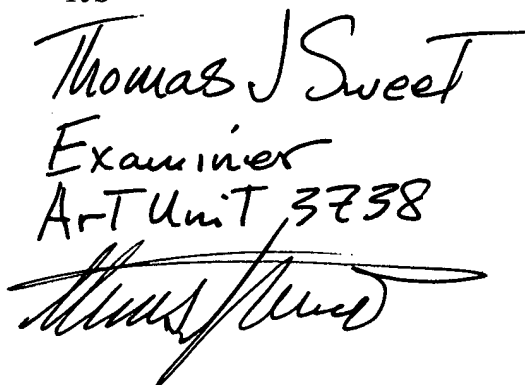 Thomas J Sweet
Examiner
Art Unit 3738